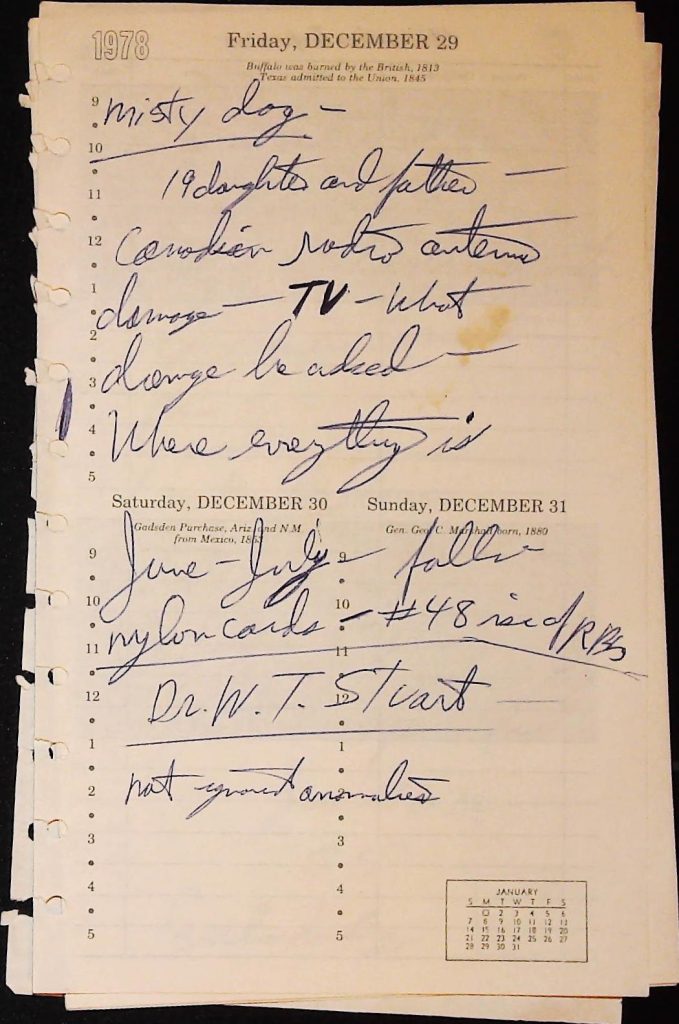 1978
Friday, DECEMBER 29
Buffalo was burned by the British, 1813
Texas admitted to the Union, 1845
9 misty day –
10
19 daughter and father –
11
12 Canadian radio antenna
1 damage – TV – What
2
3 damage he asked –
4 Where everything is
5
Saturday, DECEMBER 30 Sunday, DECEMBER 31
Gadsden Purchase, Ariz. and N.M. Gen. Geo. C. Marshall born, 1880
from Mexico, 1853
9 June – July – 9 falls –
10 10
nylon cards – #48
11 11
12 Dr. W. T. Stuart – 12
1 1
2 not ignored anomalies 2
3 3
4 4
5 5
JANUARY
S M T W T F S
1 2 3 4 5 6
7 8 9 10 11 12 13
14 15 16 17 18 19 20
21 22 23 24 25 26 27
28 29 30 31